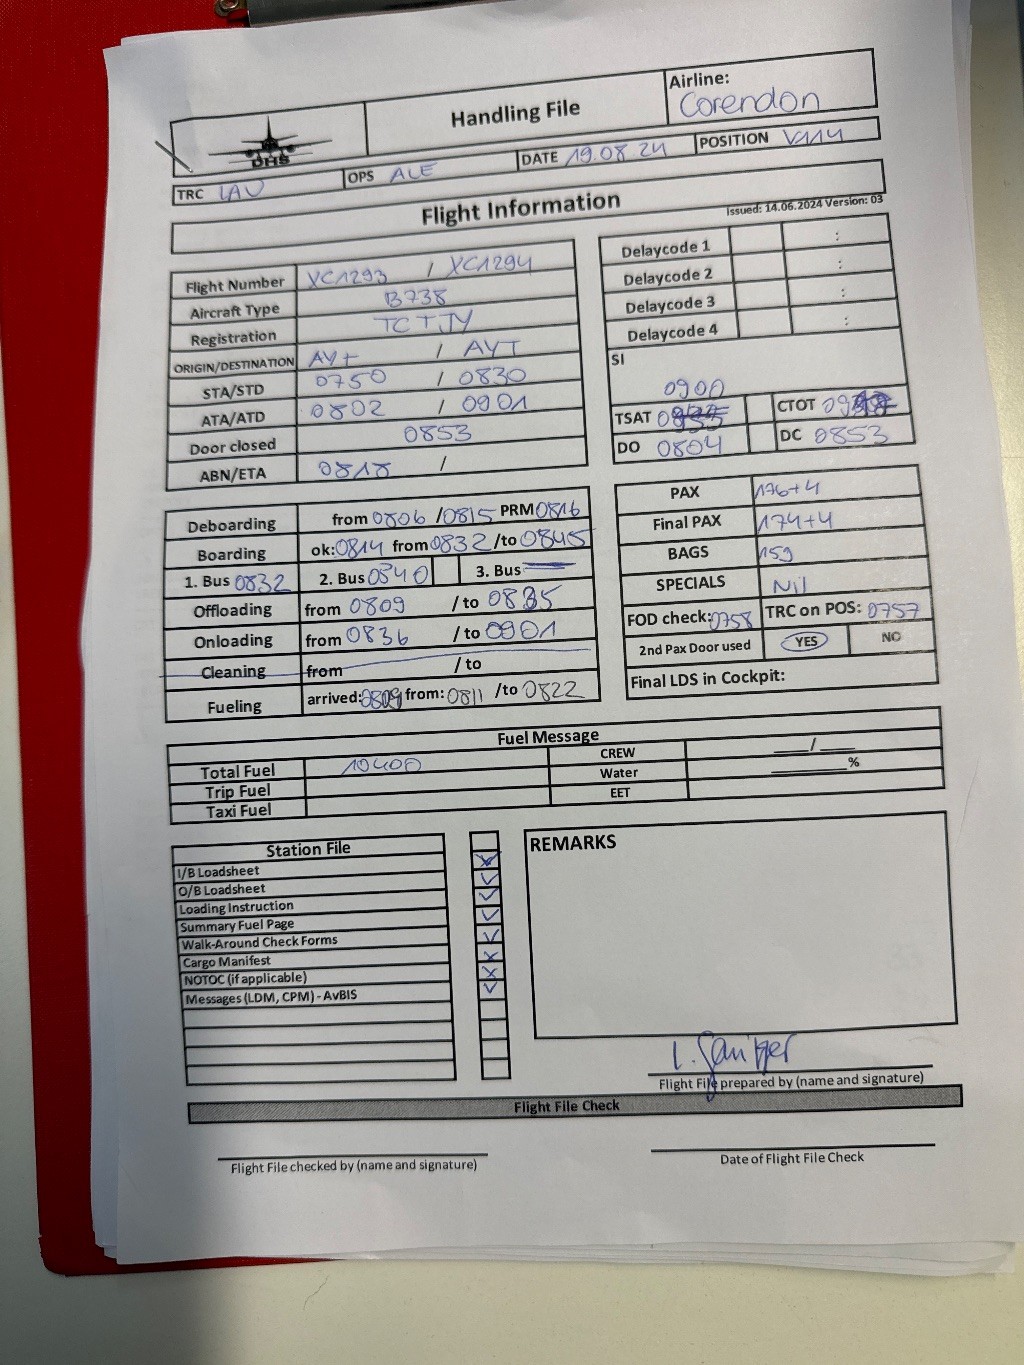 Airline:
Handling File Corendon
DHS
TRC LAU OPS ALE DATE 19.08 24 POSITION V114
Flight Information
Issued: 14.06.2024 Version: 03
Flight Number XC1293 / XC1294
Aircraft Type B738
Registration TCTJY
ORIGIN/DESTINATION AYT / AYT
STA/STD 0750 / 0830
ATA/ATD 0802 / 0901
Door closed 0853
ABN/ETA 0818 /
Delaycode 1 :
Delaycode 2 :
Delaycode 3 :
Delaycode 4 :
SI
0900
TSAT CTOT
DO 0804 DC 0853
Deboarding from 0806 /0815 PRM 0816
Boarding ok: 0814 from 0832 /to 0845
1. Bus 0832 2. Bus 0840 3. Bus
Offloading from 0809 /to 0835
Onloading from 0836 /to 0901
Cleaning from /to
Fueling arrived: 0809 from: 0811 /to 0822
PAX 176+4
Final PAX 174+4
BAGS 159
SPECIALS Nil
FOD check: 0758 TRC on POS: 0757
2nd Pax Door used YES NO
Final LDS in Cockpit:
Fuel Message
Total Fuel 10400 CREW ___/___
Trip Fuel Water ______%
Taxi Fuel EET
Station File
I/B Loadsheet
O/B Loadsheet
Loading Instruction
Summary Fuel Page
Walk-Around Check Forms
Cargo Manifest
NOTOC (if applicable)
Messages (LDM, CPM) - AvBIS
REMARKS
Flight File prepared by (name and signature)
Flight File Check
Flight File checked by (name and signature)
Date of Flight File Check